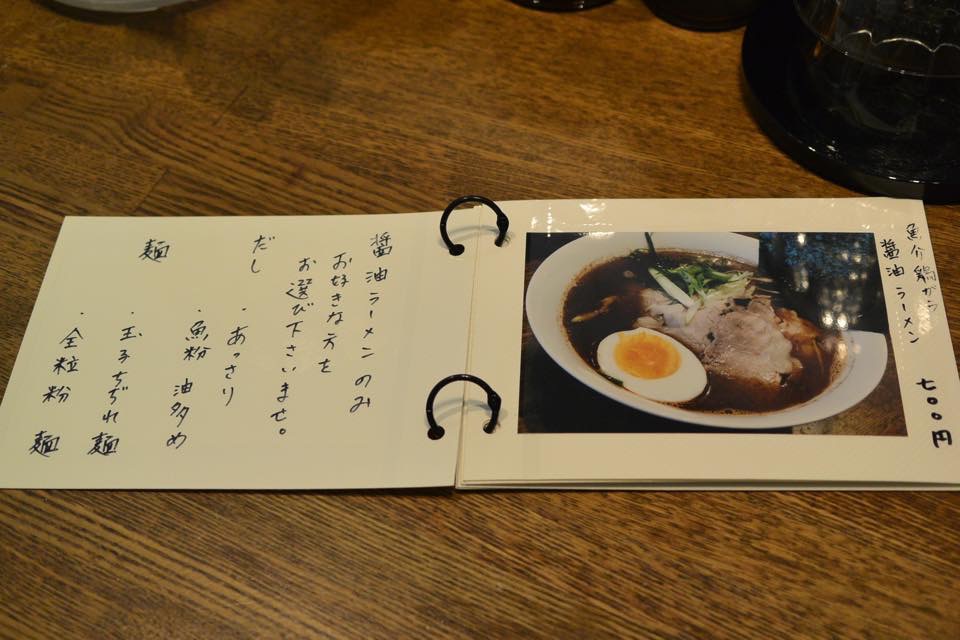 魚介鶏ガラ
醤油ラーメン 七〇〇円
醤油ラーメンのみ
お好きな方を
お選び下さいませ。
だし
・あっさり
・魚粉 油多め
麺
・玉子ちぢれ麺
・全粒粉 麺